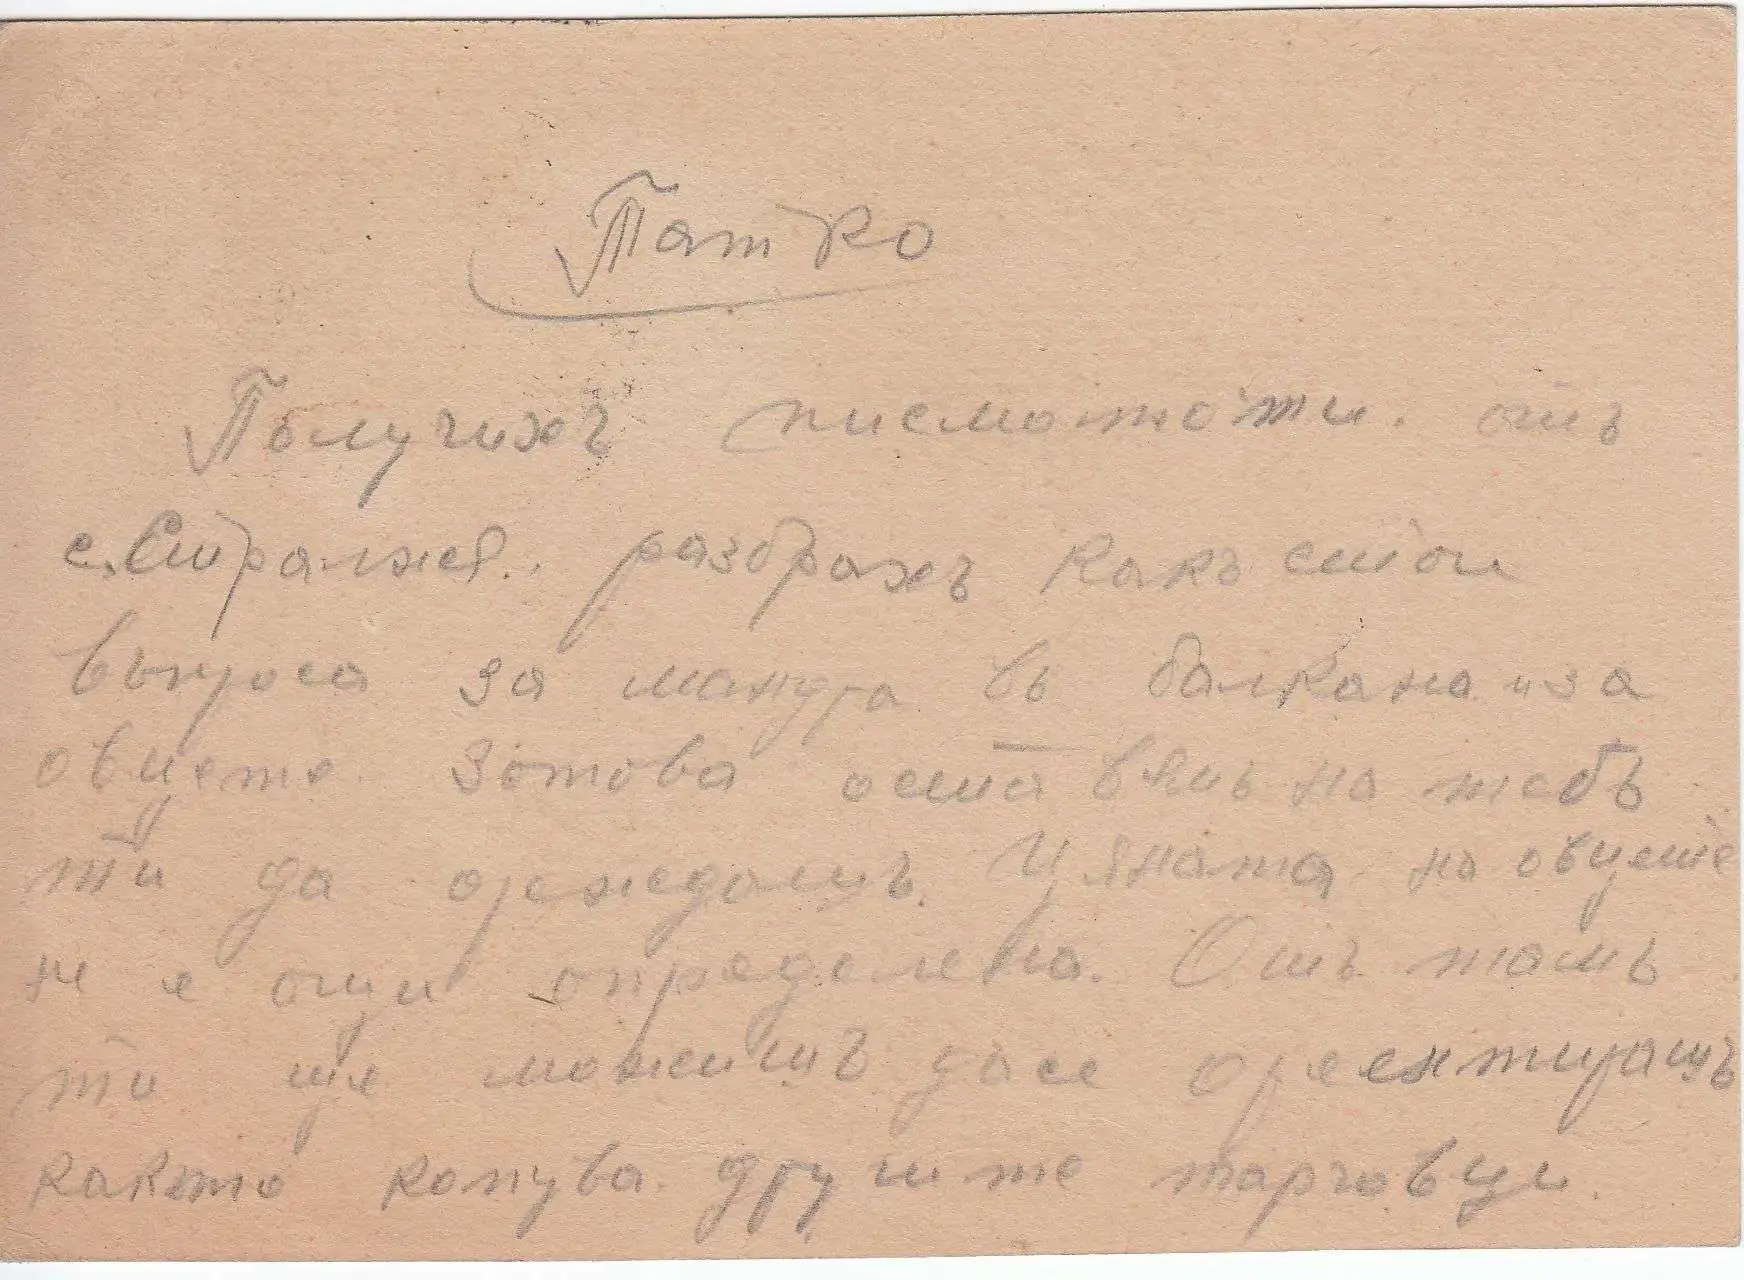 Татко
Получихъ писмото ти. отъ
с. Стралжа.. разбрахъ какъ стои
въпроса за мандра въ балкана и за
овцете. Зотова оставямъ на тебъ
ти да орежданъ. Цяната на овцете
не е още определена. Отъ тамъ
ти ще можешъ да се орентирашъ
както копува. другите търговци.